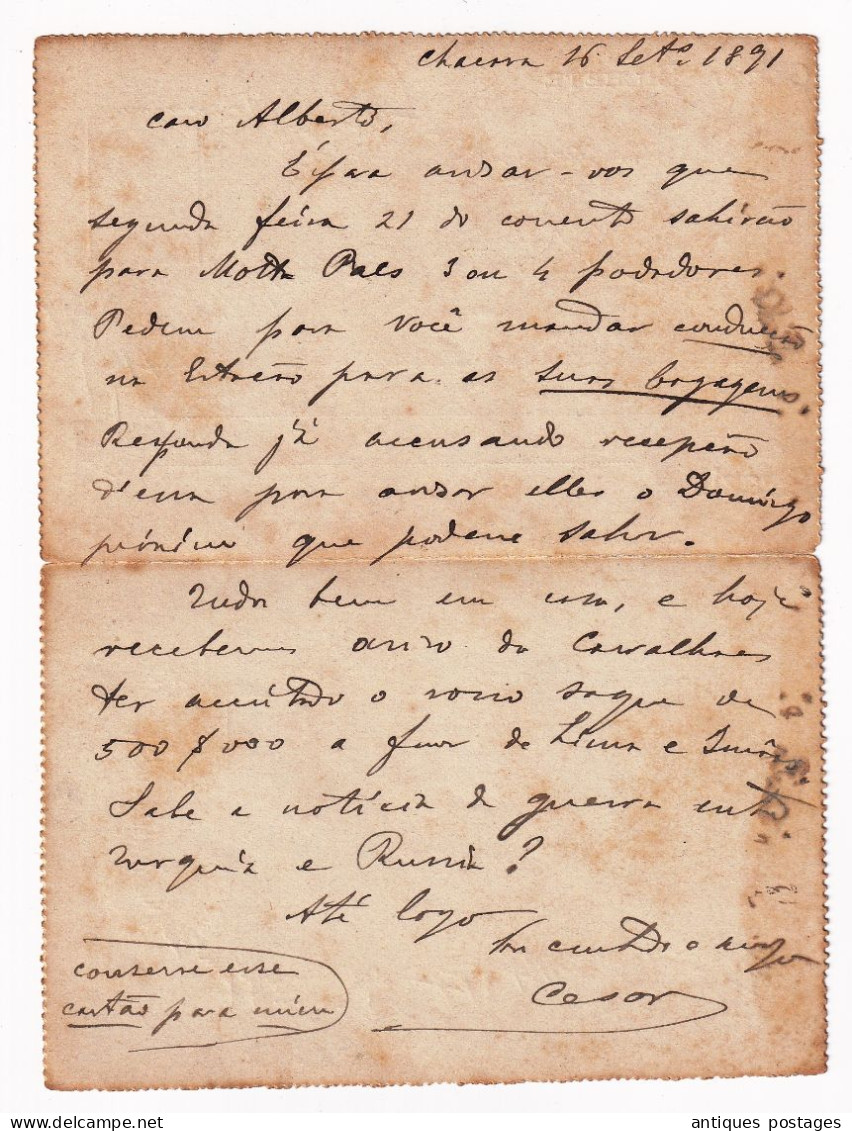 Chacara 16 Set.o 1891
Caro Alberto,
É para avisar-vos que
segunda feira 21 do corrente sahirão
para Motta Paes 3 ou 4 podadores.
Pedem para Você mandar conducção
na Estação para as suas bagagens.
Responda já accusando recepção
d'essa para avisar elles o Domingo
próximo que podem sahir.
Tudo bem em casa, e hoje
recebemos aviso do Carvalhaes
ter acceitado o vosso saque de
500$000 a favor de Lima e
Sabe a notícia da guerra entre
Turquia e Russia?
Até logo
cunhado e amigo
Cesar
conserve esse
cartão para mim
antiques postages